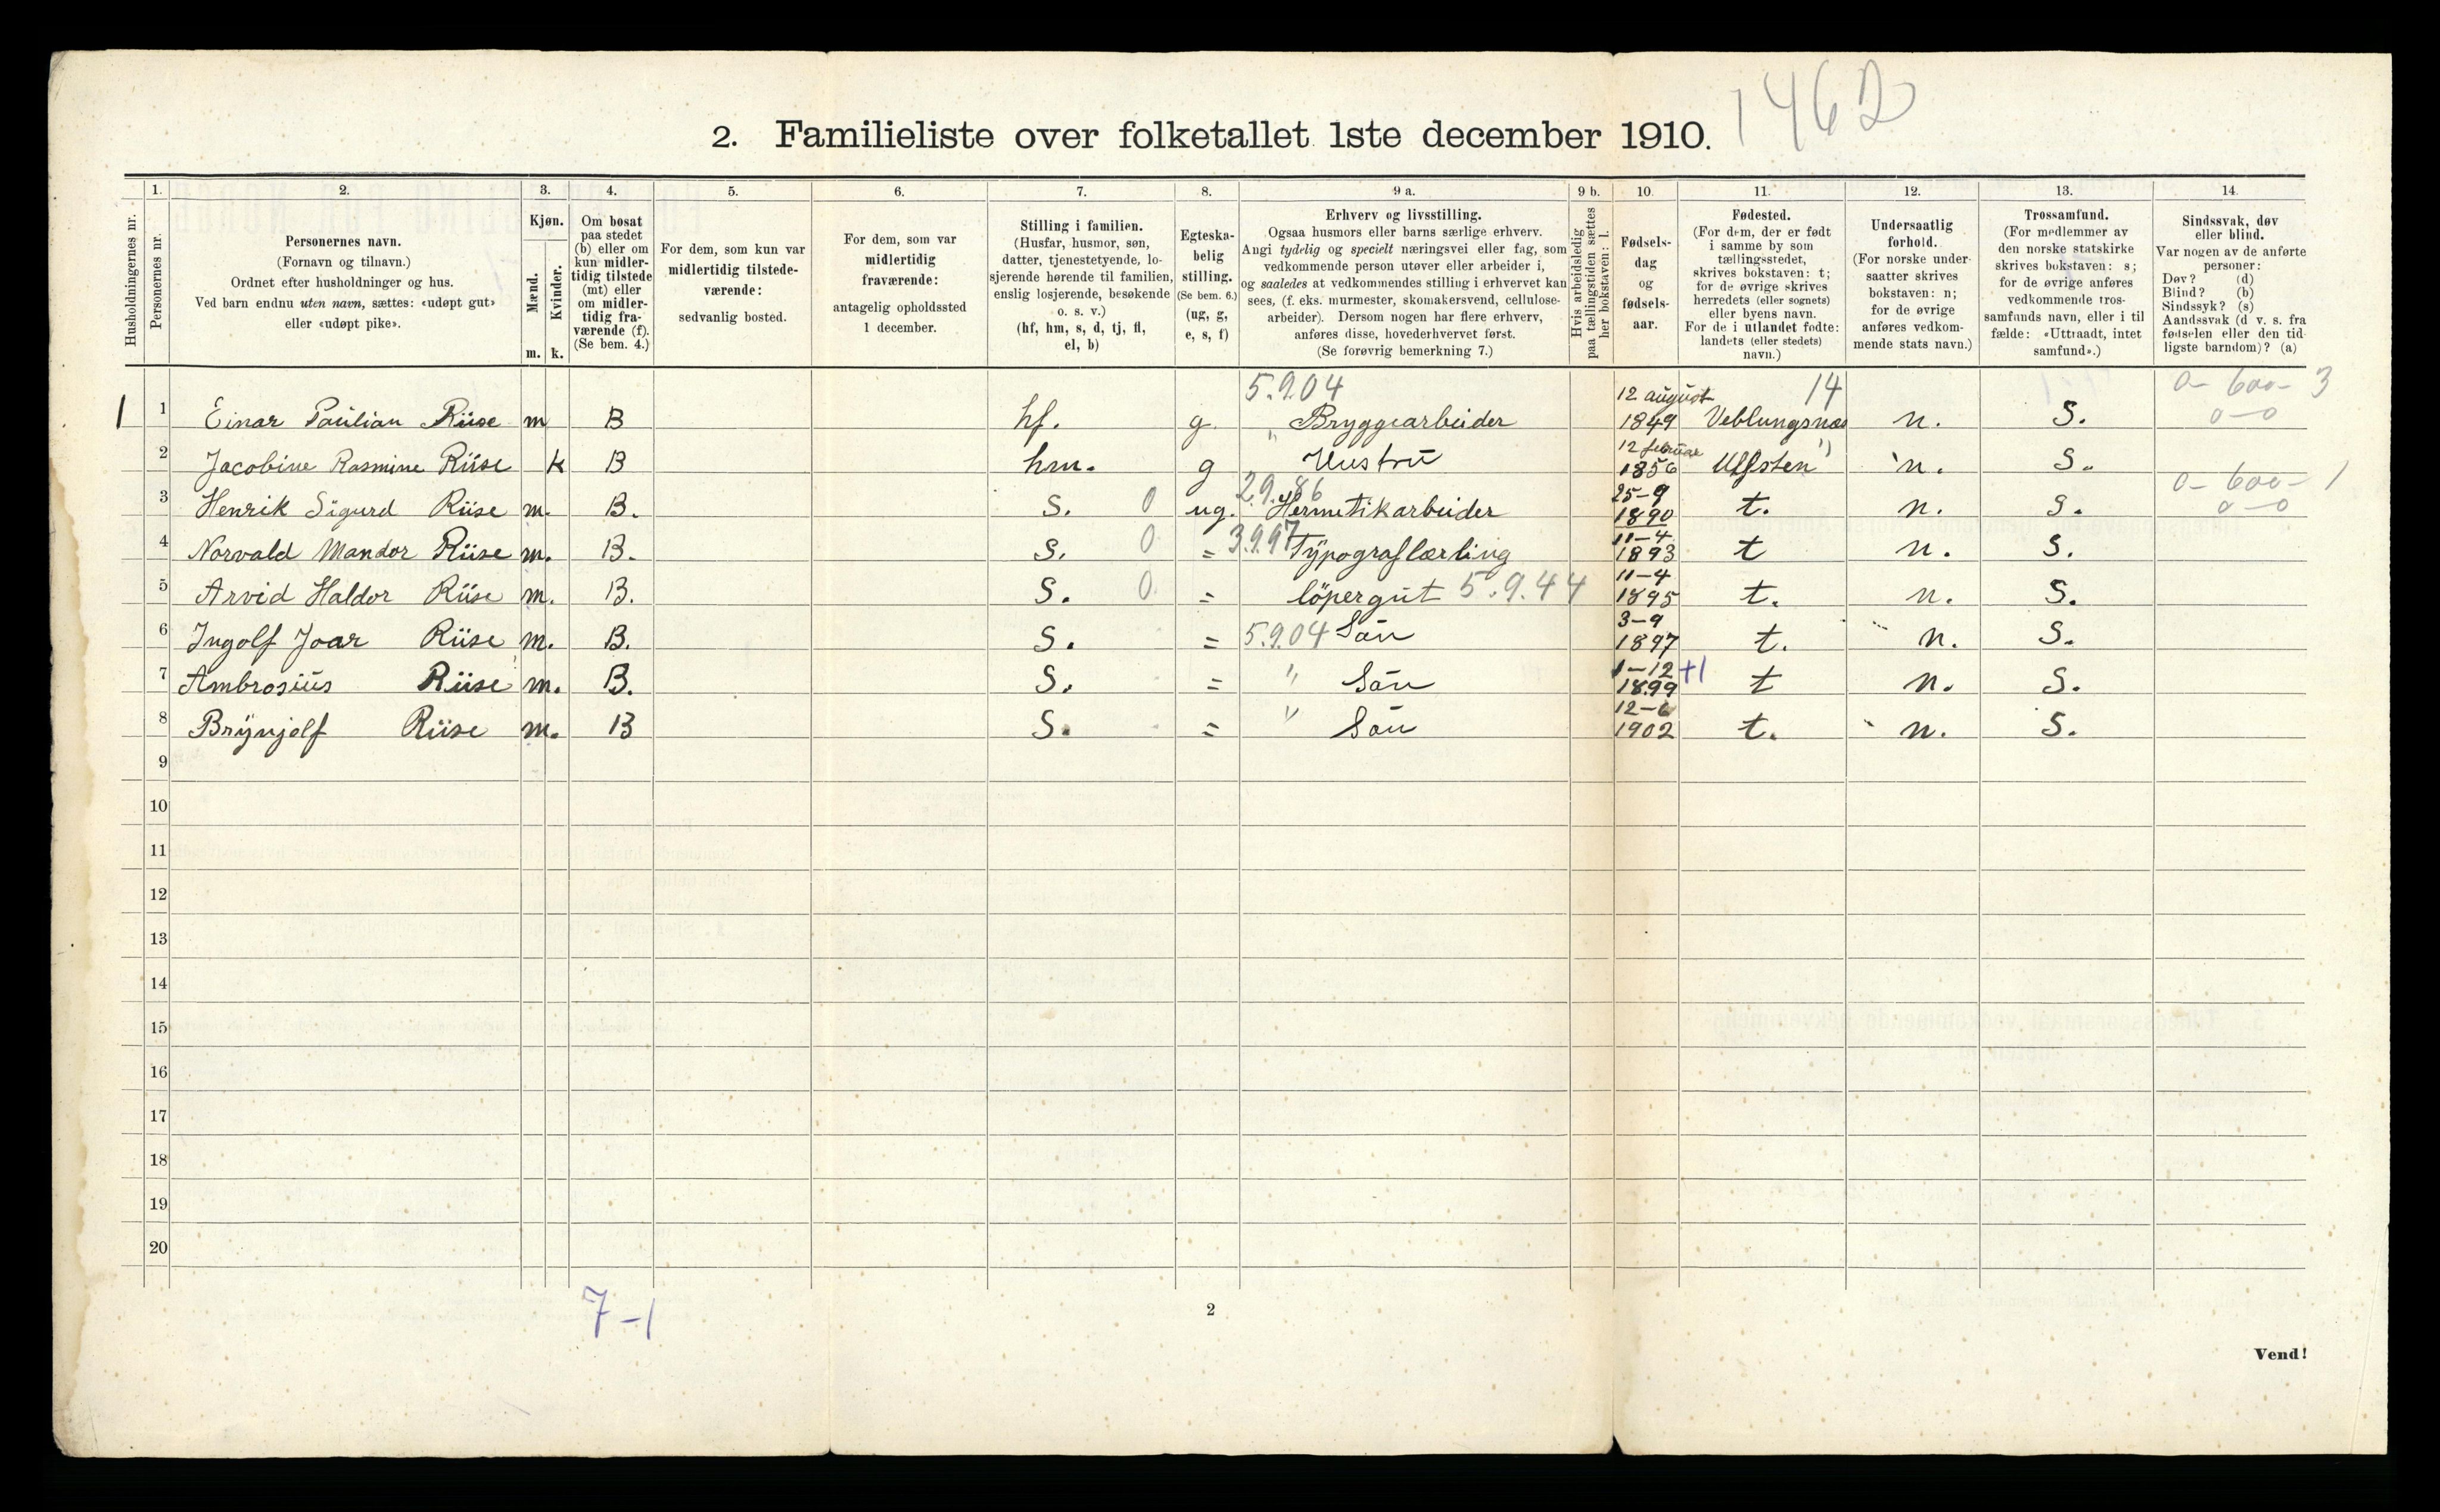 1462
2. Familieliste over folketallet 1ste december 1910.
Husholdningernes nr.
1.
Personernes nr.
2.
Personernes navn.
(Fornavn og tilnavn.)
Ordnet efter husholdninger og hus.
Ved barn endnu uten navn, sættes: «udøpt gut»
eller «udøpt pike».
3.
Kjøn.
Mænd.
Kvinder.
m. k.
4.
Om bosat
paa stedet
(b) eller om
kun midler-
tidig tilstede
(mt) eller
om midler-
tidig fra-
værende (f).
(Se bem. 4.)
5.
For dem, som kun var
midlertidig tilstede-
værende:
sedvanlig bosted.
6.
For dem, som var
midlertidig
fraværende:
antagelig opholdssted
1 december.
7.
Stilling i familien.
(Husfar, husmor, søn,
datter, tjenestetyende, lo-
sjerende hørende til familien,
enslig losjerende, besøkende
o. s. v.)
(hf, hm, s, d, tj, fl,
el, b)
8.
Egteska-
belig
stilling.
(Se bem. 6.)
(ug, g,
e, s, f)
9 a.
Erhverv og livsstilling.
Ogsaa husmors eller barns særlige erhverv.
Angi tydelig og specielt næringsvei eller fag, som
vedkommende person utøver eller arbeider i,
og saaledes at vedkommendes stilling i erhvervet kan
sees, (f. eks. murmester, skomakersvend, cellulose-
arbeider). Dersom nogen har flere erhverv,
anføres disse, hovederhvervet først.
(Se forøvrig bemerkning 7.)
9 b.
Hvis arbeidsledig
paa tællingstiden sættes
her bokstaven: l.
10.
Fødsels-
dag
og
fødsels-
aar.
11.
Fødested.
(For dem, der er født
i samme by som
tællingsstedet,
skrives bokstaven: t;
for de øvrige skrives
herredets (eller sognets)
eller byens navn.
For de i utlandet fødte:
landets (eller stedets)
navn.)
12.
Undersaatlig
forhold.
(For norske under-
saatter skrives
bokstaven: n;
for de øvrige
anføres vedkom-
mende stats navn.)
13.
Trossamfund.
(For medlemmer av
den norske statskirke
skrives bokstaven: s;
for de øvrige anføres
vedkommende tros-
samfunds navn, eller i til-
fælde: «Uttraadt, intet
samfund».)
14.
Sindssvak, døv
eller blind.
Var nogen av de anførte
personer:
Døv? (d)
Blind? (b)
Sindssyk? (s)
Aandssvak (d v. s. fra
fødselen eller den tid-
ligste barndom)? (a)
5.9.04 12 august 14 0- 600- 3
1 1 Einar Paulian Riise m B hf. g. " Bryggearbeider 1849 Veblungsnæs n. S. 0-0
12 februar
2 Jacobine Rasmine Riise k B hm. g Hustru 1856 Ulfsten ") n. S.
2.9.86 25-9 0- 600- 1
3 Henrik Sigurd Riise m. B. S. 0 ug. Hermetikarbeider 1890 t. n. S. 0-0
3.9.97 11-4
4 Norvald Mandor Riise m. B. S. 0 = Typograflærling 1893 t n. S.
11-4
5 Arvid Haldor Riise m. B. S. 0 = löpergut 5.9.44 1895 t. n. S.
3-9
6 Ingolf Joar Riise m. B. S. = 5.9.04 Sön 1897 t. n. S.
1-12 +1
7 Ambrosius Riise m. B. S. = " Sön 1899 t n. S.
12-6
8 Brynjolf Riise m. B S. = " Sön 1902 t. n. S.
9
10
11
12
13
14
15
16
17
18
19
20
7-1
2
Vend!